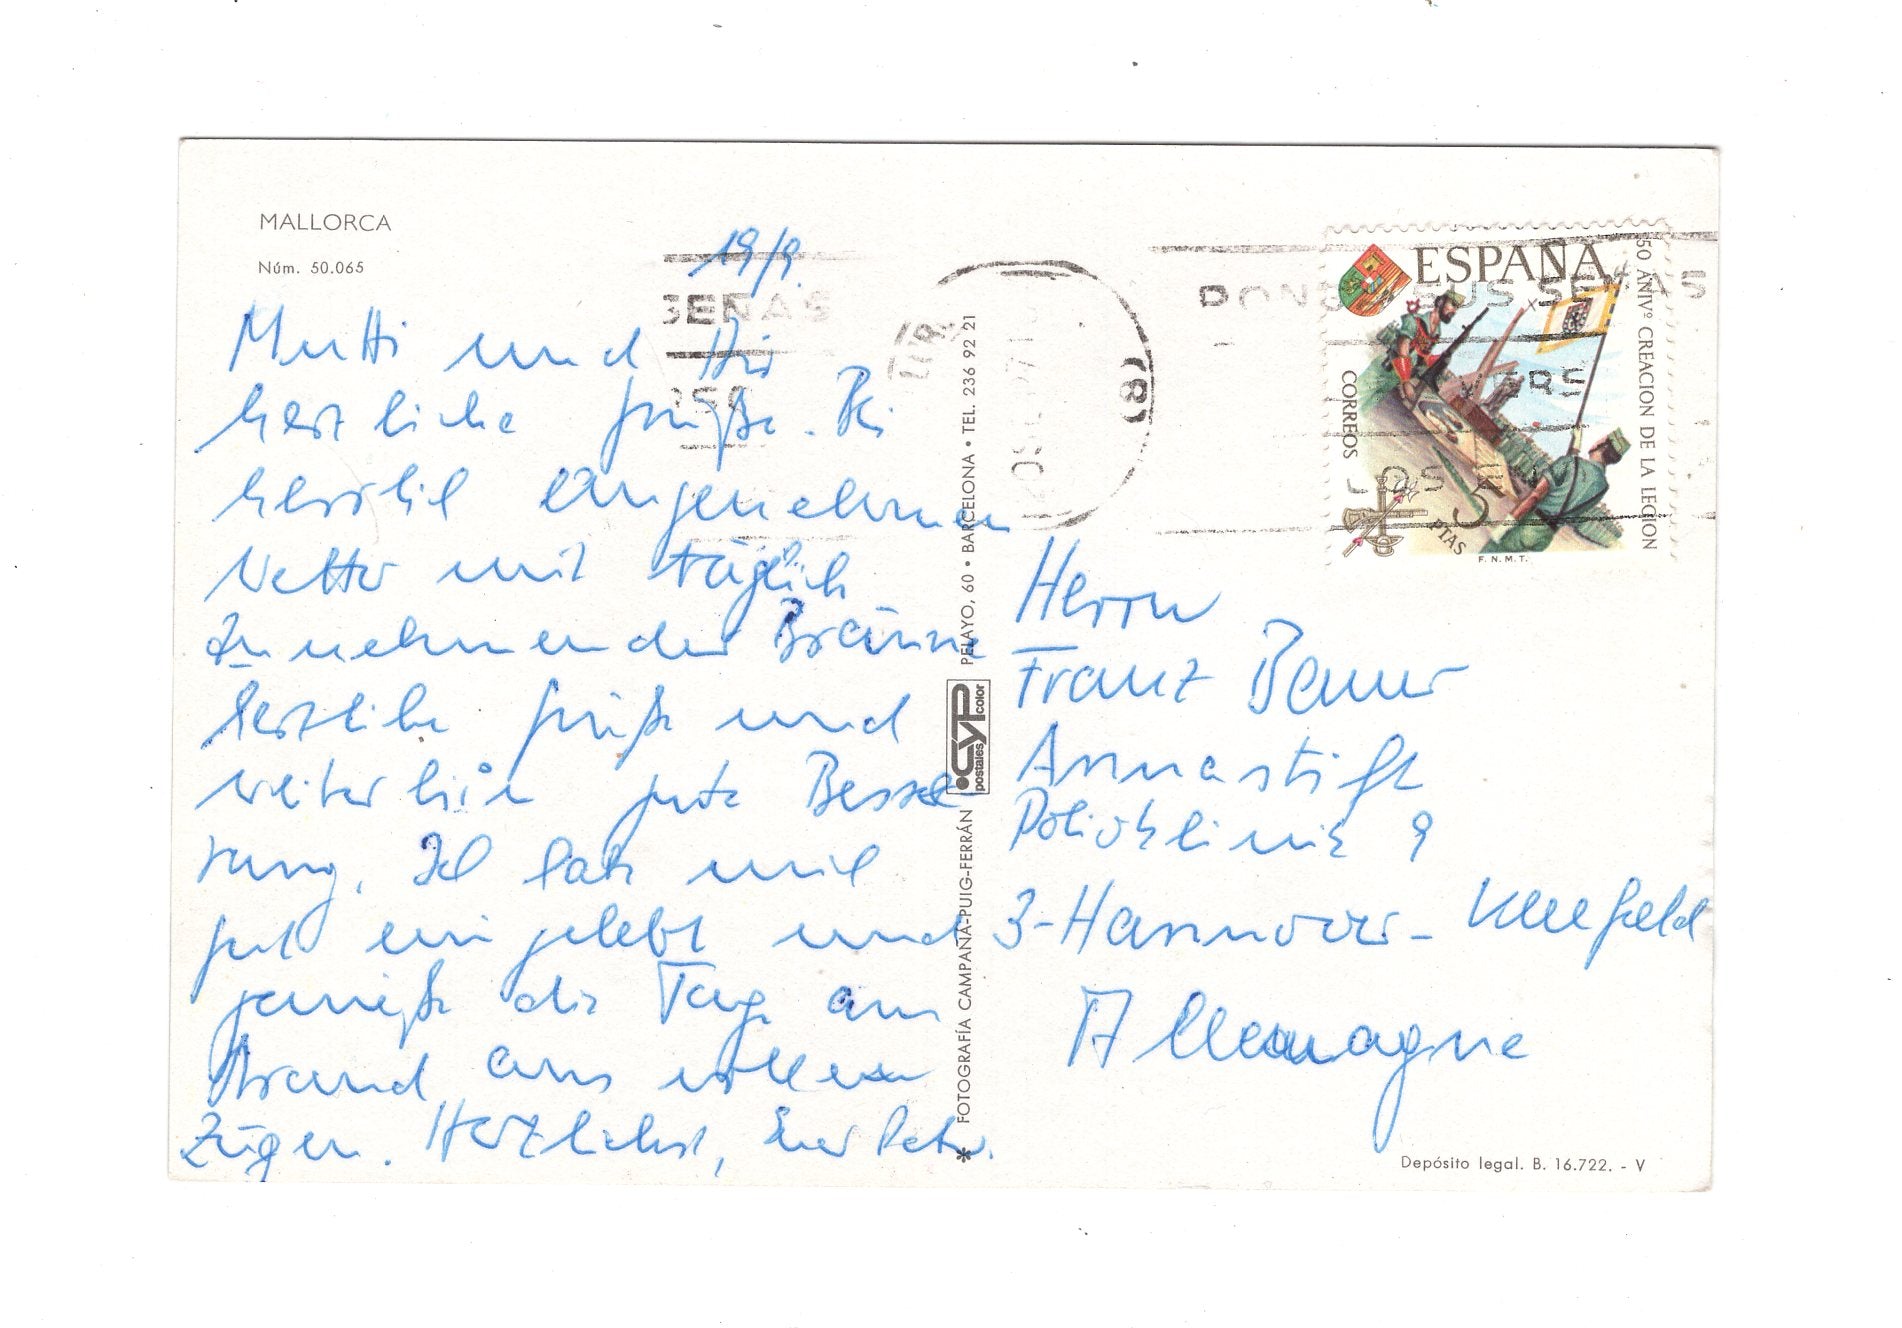 MALLORCA
Núm. 50.065
19/9.
Mutti und Dir
herzliche Grüße. Bei
herrlich angenehmen
Wetter mit täglich
zunehmender Bräune
herzliche Grüße und
weiterhin gute Besse
rung. Ich habe mich
gut eingelebt und
genieße die Tage am
Strand aus vollen
Zügen. Herzlichst, Euer Peter.
FOTOGRAFÍA CAMPAÑÁ-PUIG-FERRÁN
postales CYP color
PELAYO, 60 • BARCELONA • TEL. 236 92 21
SEÑAS
ESPAÑA
50 ANIVº CREACION DE LA LEGION
CORREOS
5 PTAS
F.N.M.T.
Herrn
Franz Bauer
Annastift
Poliklinik 9
3-Hannover-Kleefeld
Allemagne
Depósito legal. B. 16.722. - V